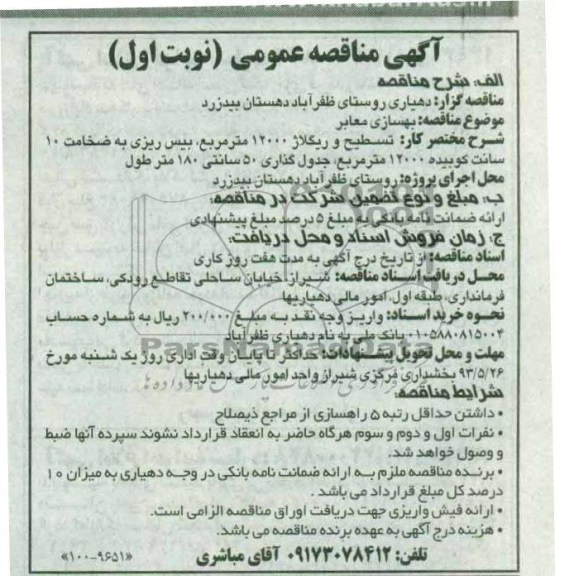 آگهی مناقصه عمومی (نوبت اول)
الف: شرح مناقصه
مناقصه گزار: دهیاری روستای ظفرآباد دهستان بیدزرد
موضوع مناقصه: بهسازی معابر
شرح مختصر کار: تسطیح و ریگلاژ ۱۲۰۰۰ مترمربع، بیس ریزی به ضخامت ۱۰
سانت کوبیده ۱۲۰۰۰ مترمربع، جدول گذاری ۵۰ سانتی ۱۸۰ متر طول
محل اجرای پروژه: روستای ظفرآباد دهستان بیدزرد
ب: مبلغ و نوع تضمین شرکت در مناقصه:
ارائه ضمانت نامه بانکی به مبلغ ۵ درصد مبلغ پیشنهادی
ج: زمان فروش اسناد و محل دریافت:
اسناد مناقصه: از تاریخ درج آگهی به مدت هفت روز کاری
محل دریافت اسناد مناقصه: شیراز، خیابان ساحلی تقاطع رودکی، ساختمان
فرمانداری، طبقه اول، امور مالی دهیاریها
نحوه خرید اسناد: واریز وجه نقد به مبلغ ۲۰۰/۰۰۰ ریال به شماره حساب
۰۱۰۵۸۸۰۸۱۵۰۰۴ بانک ملی به نام دهیاری ظفرآباد
مهلت و محل تحویل پیشنهادات: حداکثر تا پایان وقت اداری روز یک شنبه مورخ
۹۳/۵/۲۶ بخشداری مرکزی شیراز واحد امور مالی دهیاریها
شرایط مناقصه:
• داشتن حداقل رتبه ۵ راهسازی از مراجع ذیصلاح
• نفرات اول و دوم و سوم هرگاه حاضر به انعقاد قرارداد نشوند سپرده آنها ضبط
و وصول خواهد شد.
• برنده مناقصه ملزم به ارائه ضمانت نامه بانکی در وجه دهیاری به میزان ۱۰
درصد کل مبلغ قرارداد می باشد .
• ارائه فیش واریزی جهت دریافت اوراق مناقصه الزامی است.
• هزینه درج آگهی به عهده برنده مناقصه می باشد.
تلفن: ۰۹۱۷۳۰۷۸۴۱۲ آقای مباشری
«۱۰۰-۹۶۵۱»
ParsNamadData